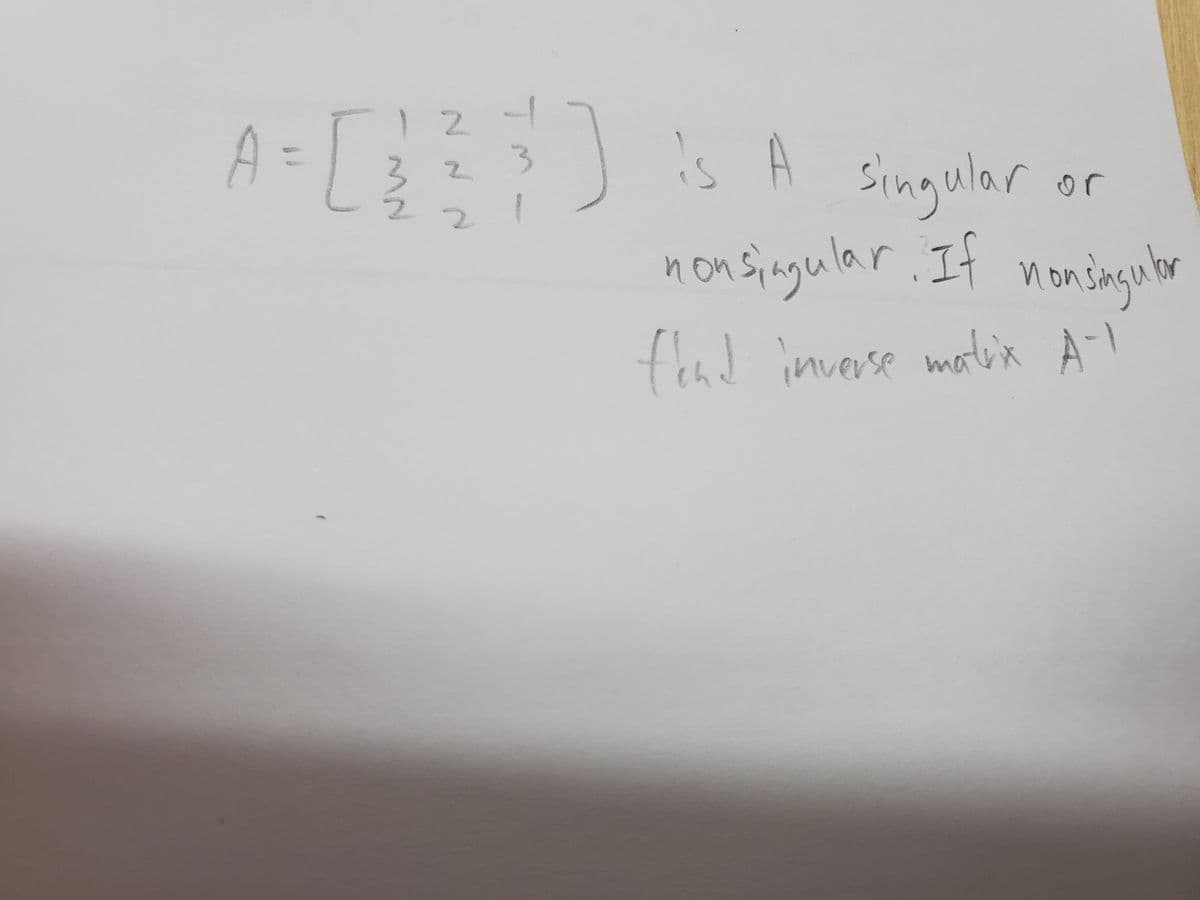 A = [ 1 2 -1
3 2 3
2 2 1 ] is A singular or
nonsingular. If nonsingular
find inverse matrix A-1